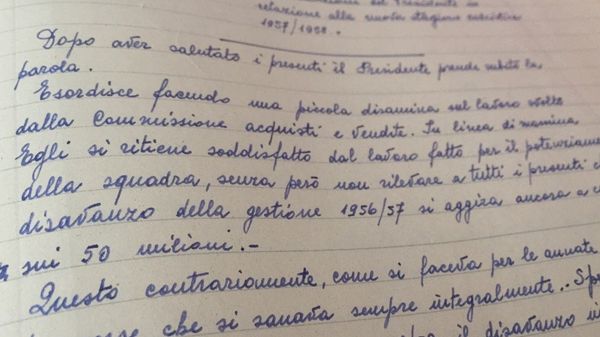 del Presidente in
relazione alla nuova stagione calcistica
1957/1958.-
Dopo aver salutato i presenti il Presidente prende subito la
parola.
Esordisce facendo una piccola disamina sul lavoro svolto
dalla Commissione acquisti e vendite. In linea di massima
Egli si ritiene soddisfatto dal lavoro fatto per il potenziame
della squadra, senza però non rilevare a tutti i presenti c
disavanzo della gestione 1956/57 si aggira ancora a c
sui 50 milioni.-
Questo contrariamente, come si faceva per le annate
che si sanava sempre integralmente..
il disavanzo